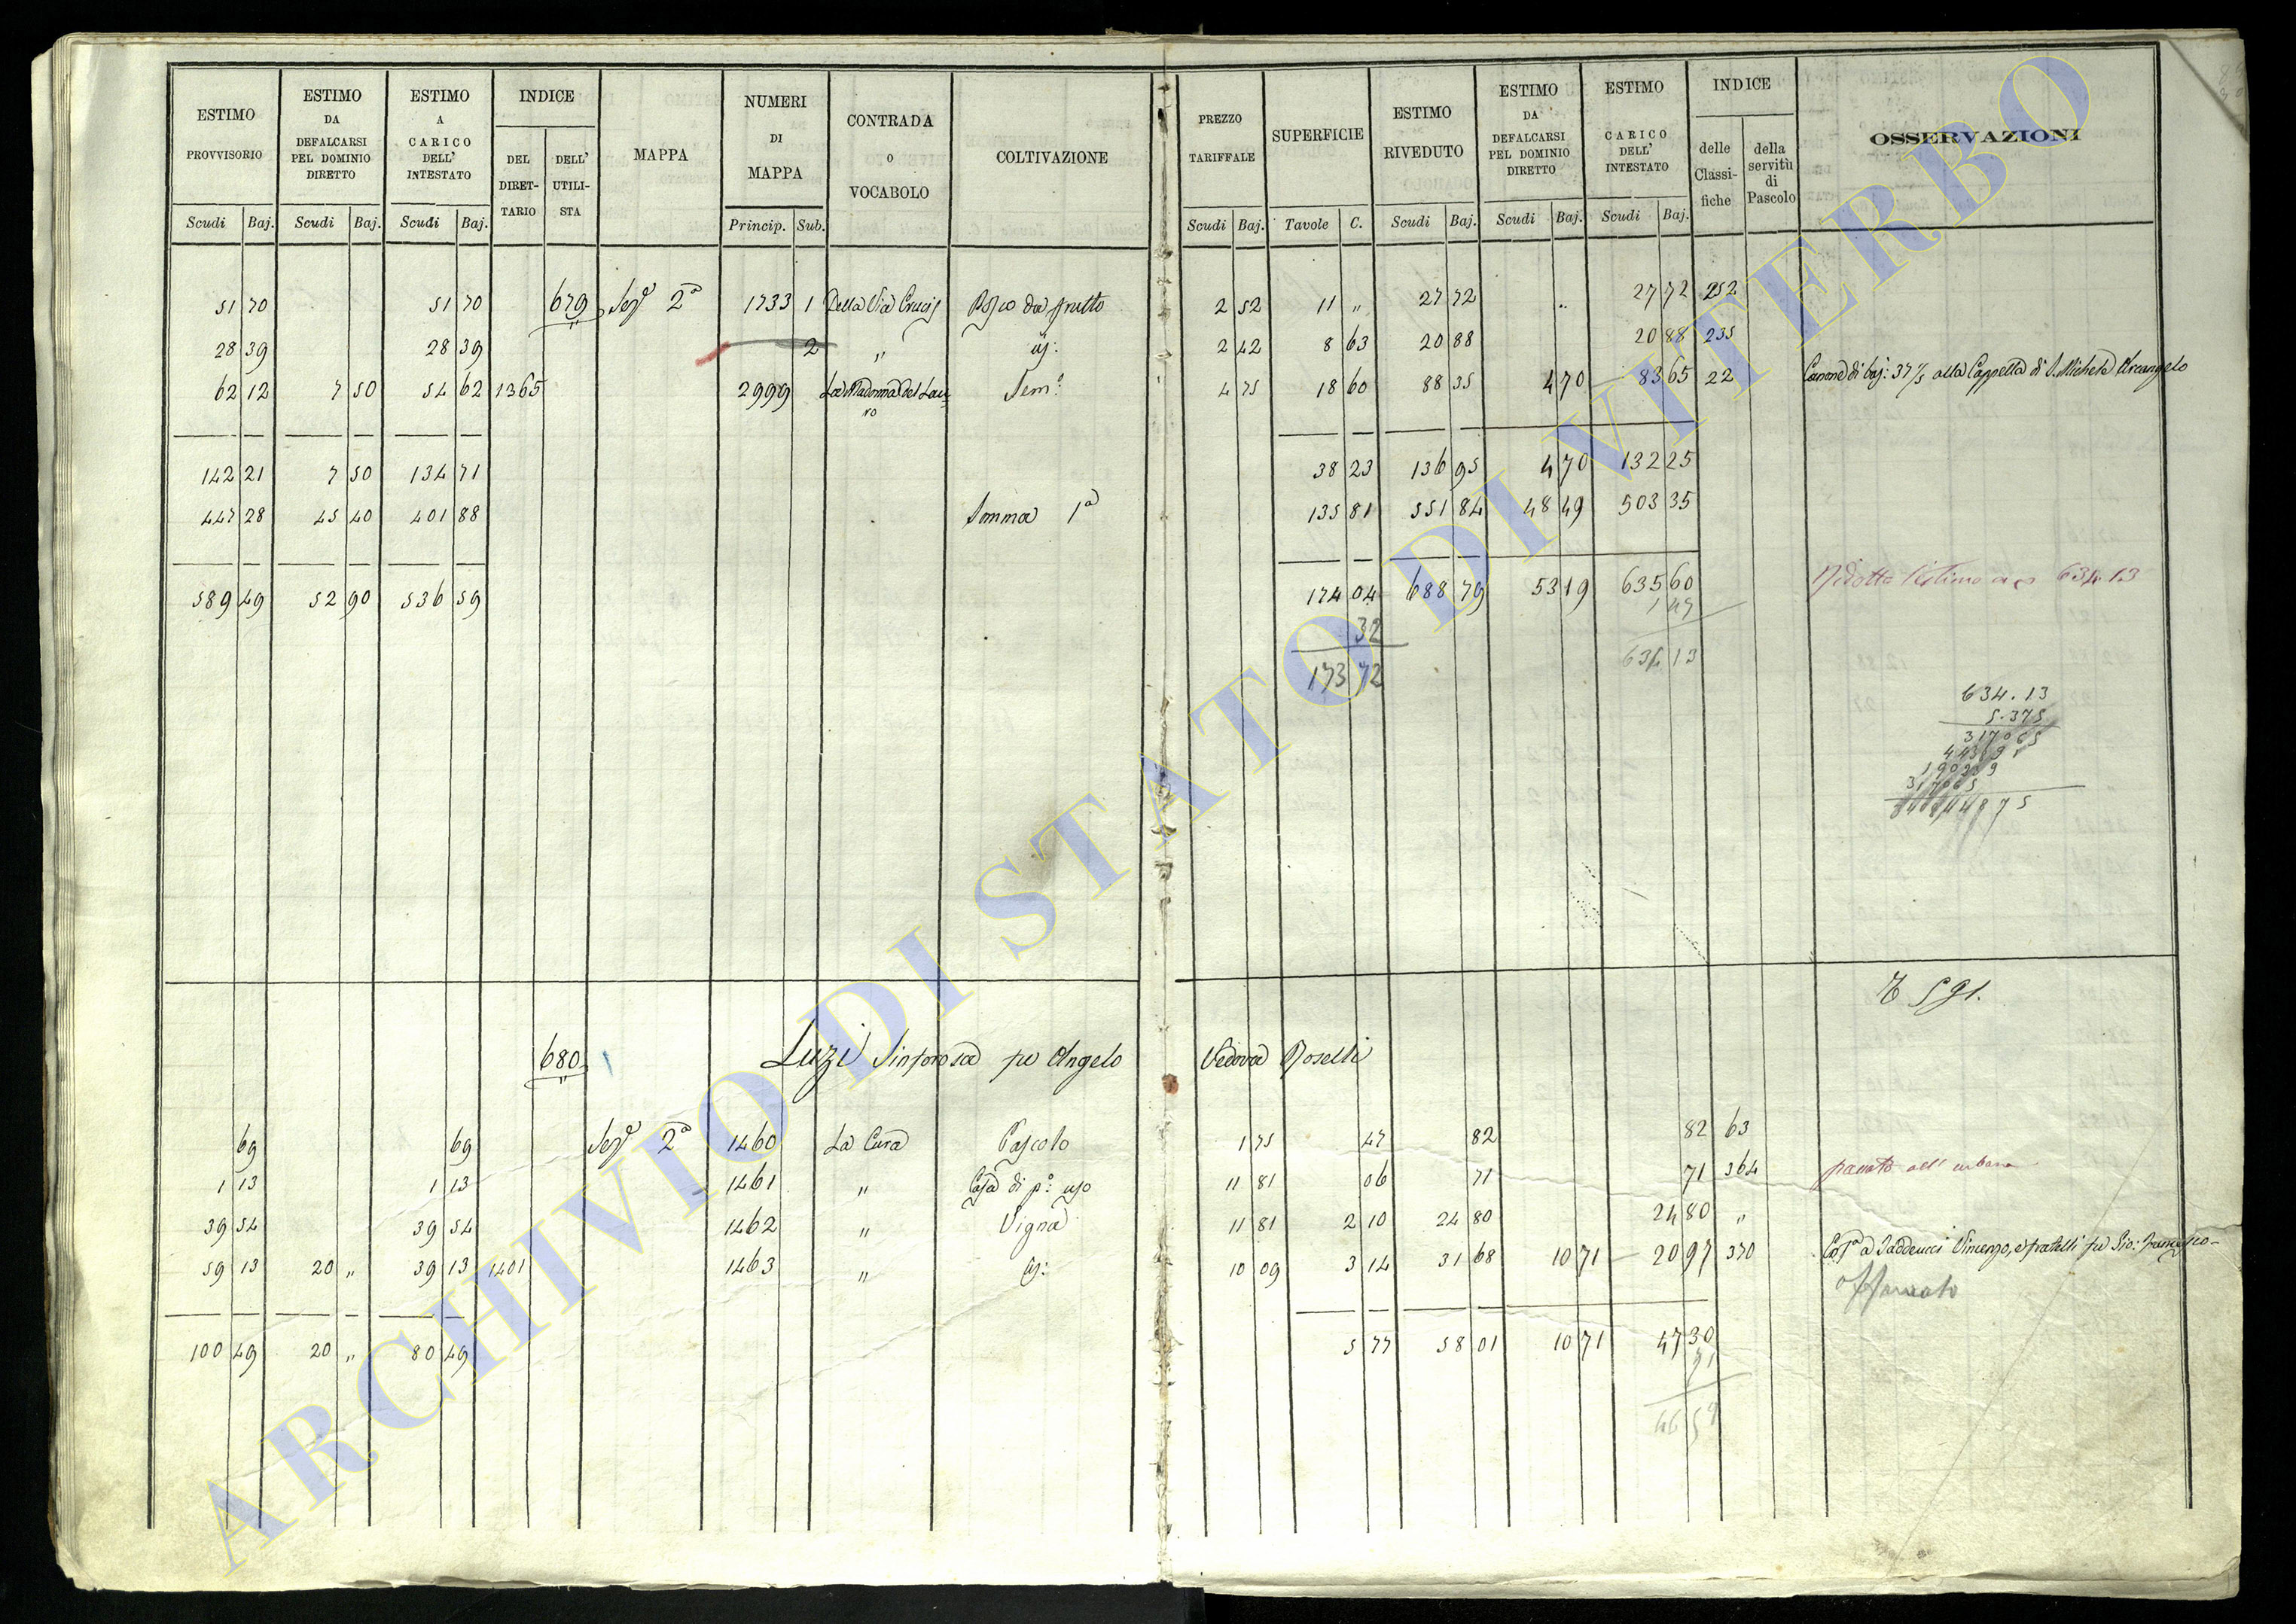 ESTIMO PROVVISORIO | ESTIMO DA DEFALCARSI PEL DOMINIO DIRETTO | ESTIMO A CARICO DELL' INTESTATO | INDICE DEL DIRETTARIO | DELL' UTILISTA | MAPPA | NUMERI DI MAPPA | CONTRADA O VOCABOLO | COLTIVAZIONE | PREZZO TARIFFALE | SUPERFICIE | ESTIMO RIVEDUTO | ESTIMO DA DEFALCARSI PEL DOMINIO DIRETTO | ESTIMO A CARICO DELL' INTESTATO | INDICE delle Classifiche | della servitù di Pascolo | OSSERVAZIONI
Scudi Baj. | Scudi Baj. | Scudi Baj. | Princip. Sub. | Scudi Baj. | Tavole C. | Scudi Baj. | Scudi Baj. | Scudi Baj.
51 70 | 51 70 | 679 | Sez.e 2a | 1733 1 | Della Via Crucis | Bosco da frutto | 2 52 | 11 " | 27 72 | .. | 27 72 | 252
28 39 | 28 39 | 2 | " | id: | 2 42 | 8 63 | 20 88 | 20 88 | 235
62 12 | 7 50 | 54 62 | 1365 | 2999 | La Madonna del Lauro | Sem.o | 4 75 | 18 60 | 88 35 | 4 70 | 83 65 | 22 | Canone di baj: 37 1/2 alla Cappella di S. Michele Arcangelo
142 21 | 7 50 | 134 71 | 38 23 | 136 95 | 4 70 | 132 25
447 28 | 45 40 | 401 88 | Somma 1a | 135 81 | 551 84 | 48 49 | 503 35
589 49 | 52 90 | 536 59 | 174 04 | 688 79 | 53 19 | 635 60 | Ridotto l'estimo a 634.13
32 | 1 47
173 72 | 634 13
634.13
5.375
317065
443891
190239
317065
R 591.
680 | Luzi Sinforosa fu Angelo Vedova Roselli
69 | 69 | Sez.e 2a | 1460 | La Cura | Pascolo | 1 75 | 47 | 82 | 82 | 63
1 13 | 1 13 | 1461 | " | Casa di p.o uso | 11 81 | 06 | 71 | 71 | 364 | passato all'urbano
39 54 | 39 54 | 1462 | " | Vigna | 11 81 | 2 10 | 24 80 | 24 80 | "
59 13 | 20 " | 39 13 | 1401 | 1463 | " | id: | 10 09 | 3 14 | 31 68 | 10 71 | 20 97 | 370 | a Taddeucci Vincenzo, e fratelli fu Gio: Francesco
affrancato
100 49 | 20 " | 80 49 | 5 77 | 58 01 | 10 71 | 47 30
71
46 59
ARCHIVIO DI STATO DI VITERBO